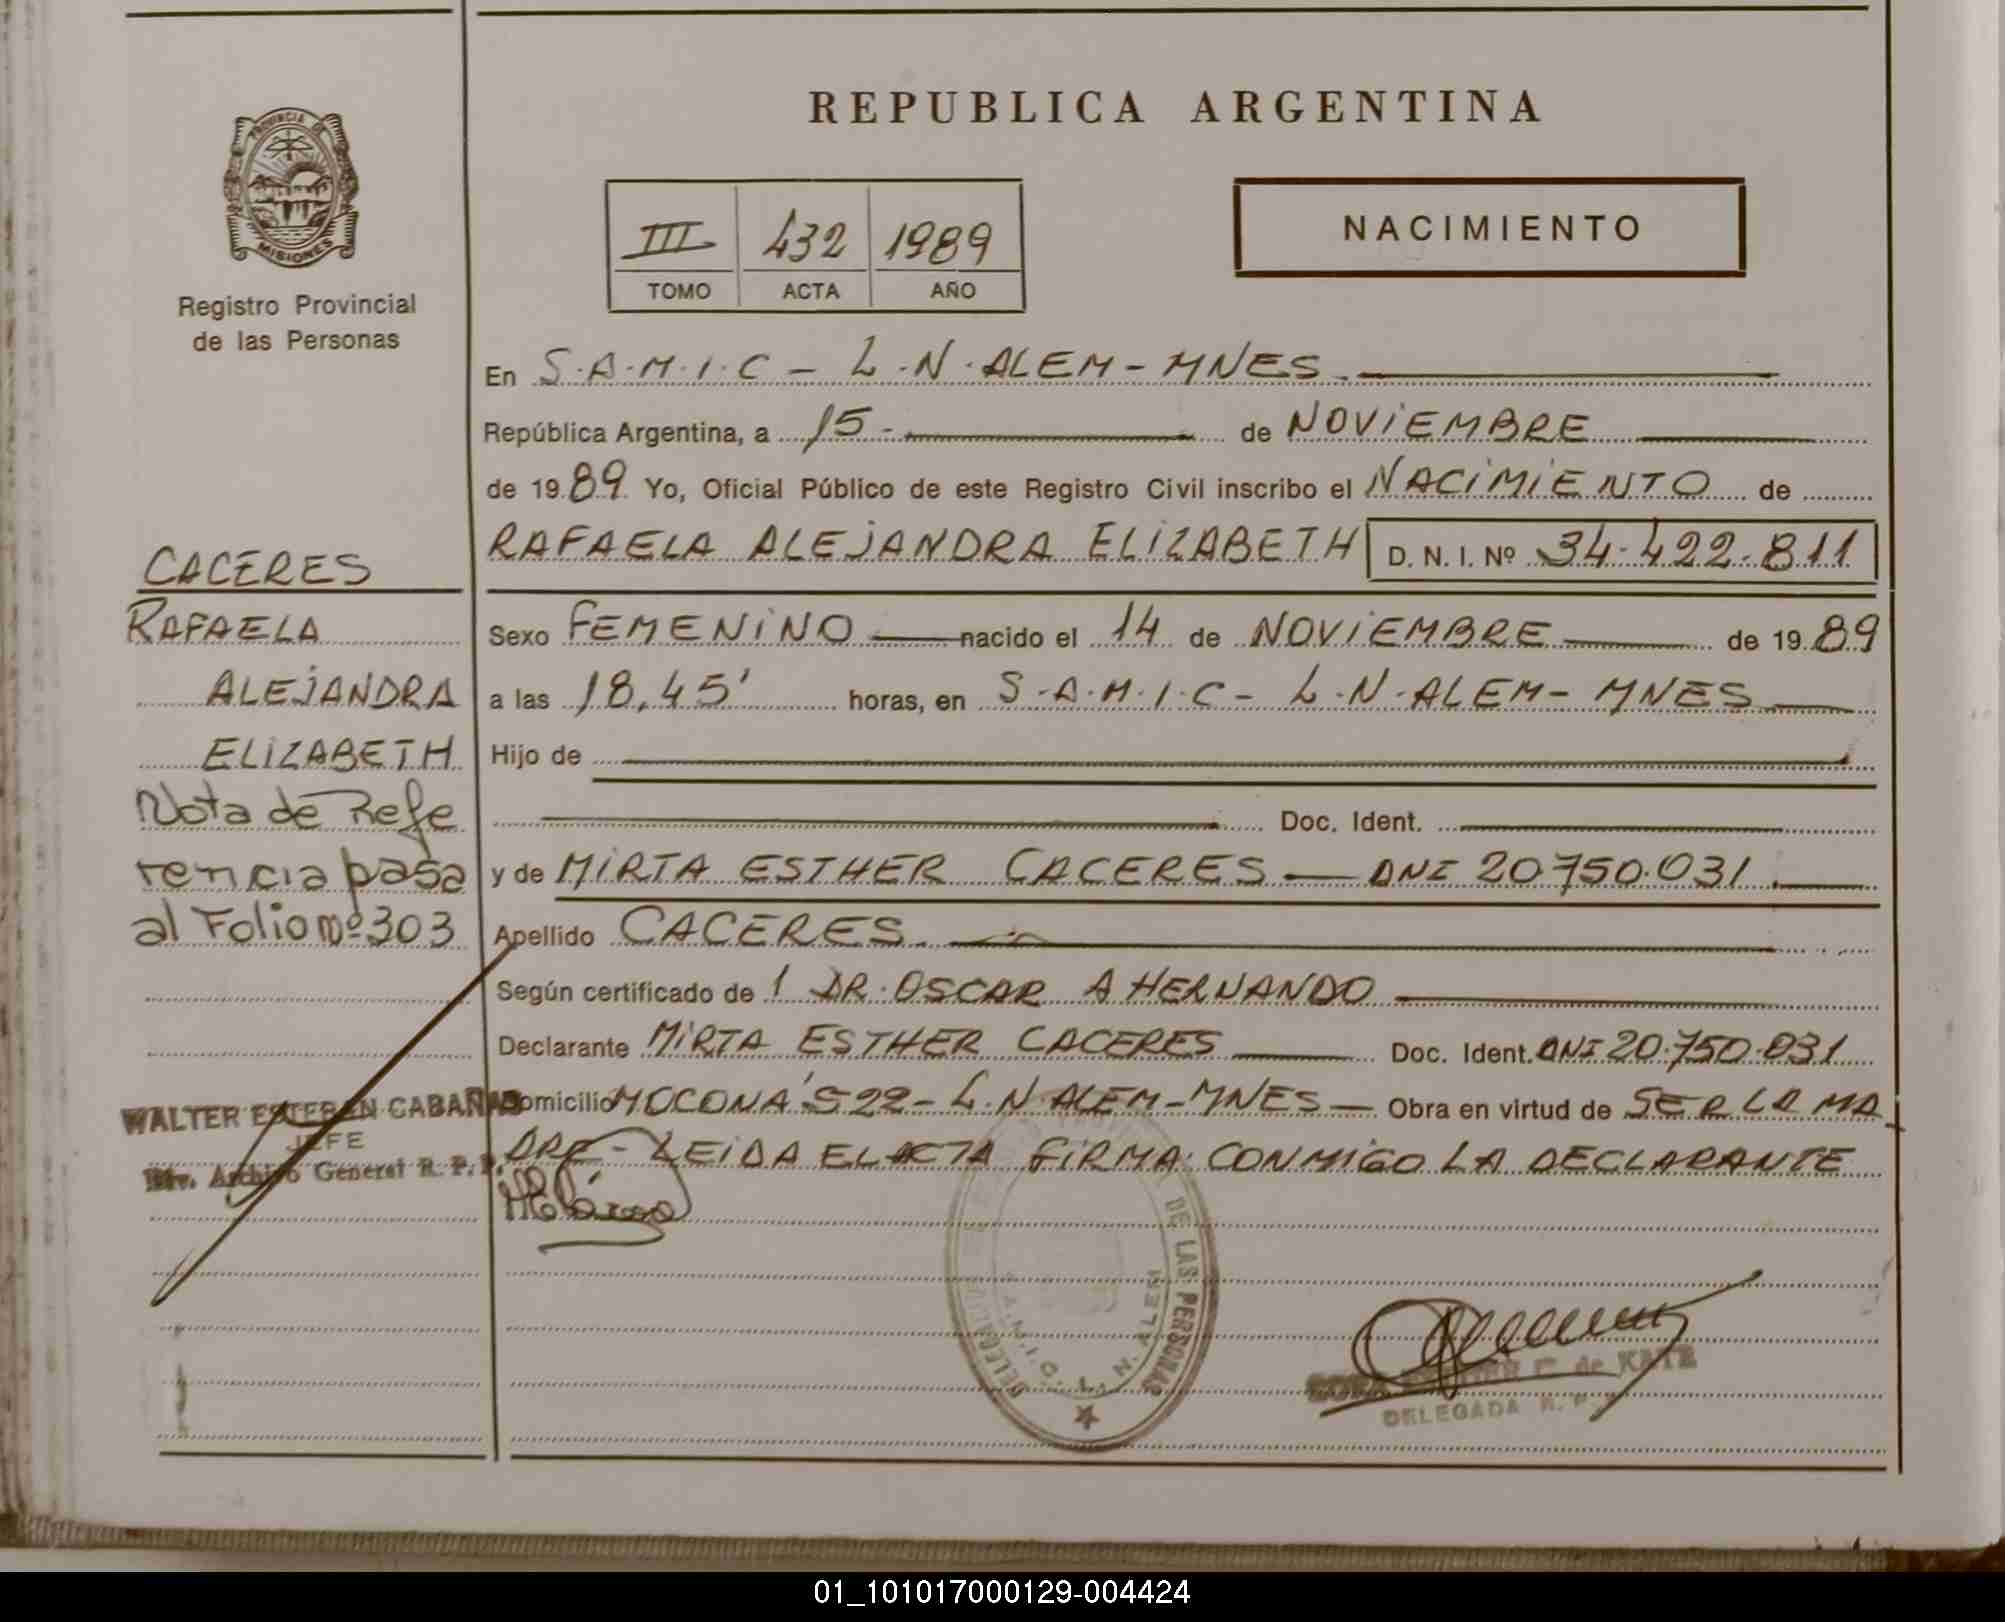 REPUBLICA ARGENTINA
PROVINCIA DE
MISIONES
Registro Provincial
de las Personas
III 432 1989
TOMO ACTA AÑO
NACIMIENTO
En S.A.M.I.C - L.N.ALEM-MNES.
República Argentina, a 15- de NOVIEMBRE
de 1989 Yo, Oficial Público de este Registro Civil inscribo el NACIMIENTO de
RAFAELA ALEJANDRA ELIZABETH D.N.I. Nº 34.422.811
CACERES
RAFAELA
ALEJANDRA
ELIZABETH
Nota de Refe
rencia pasa
al Folio nº 303
WALTER ESTEBAN CABAÑAS
JEFE
Div. Archivo General R. P. P.
Sexo FEMENINO nacido el 14 de NOVIEMBRE de 1989
a las 18,45' horas, en S.A.M.I.C- L.N.ALEM- MNES
Hijo de
Doc. Ident.
y de MIRTA ESTHER CACERES — DNI 20750.031
Apellido CACERES.
Según certificado de 1 DR. OSCAR A HERNANDO
Declarante MIRTA ESTHER CACERES Doc. Ident. DNI 20.750.031
Domicilio MOCONA' 522- L.N ALEM-MNES — Obra en virtud de SER LA MA
DRE- LEIDA EL ACTA FIRMA CONMIGO LA DECLARANTE
DE LAS PERSONAS
S.A.M.I.C. L.N. ALEM
de KATZ
DELEGADA R. P.
01_101017000129-004424